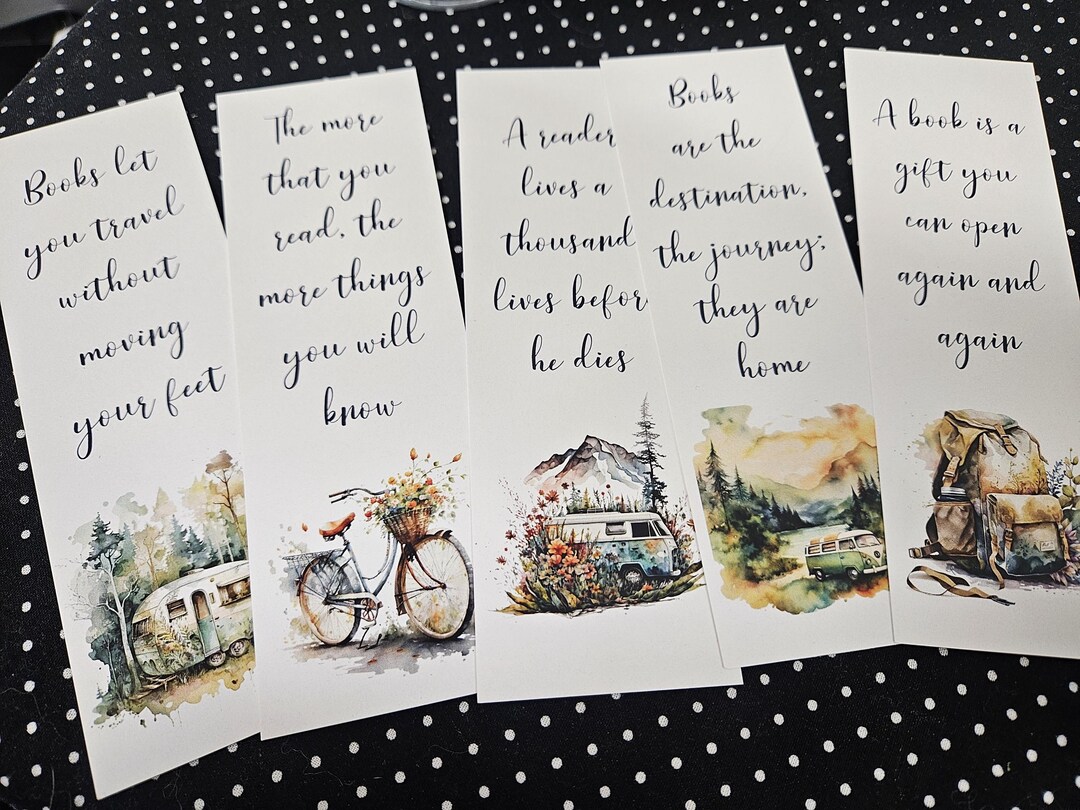 Books let
you travel
without
moving
your feet
The more
that you
read, the
more things
you will
know
A reader
lives a
thousand
lives befor
he dies
Books
are the
destination,
the journey;
they are
home
A book is a
gift you
can open
again and
again